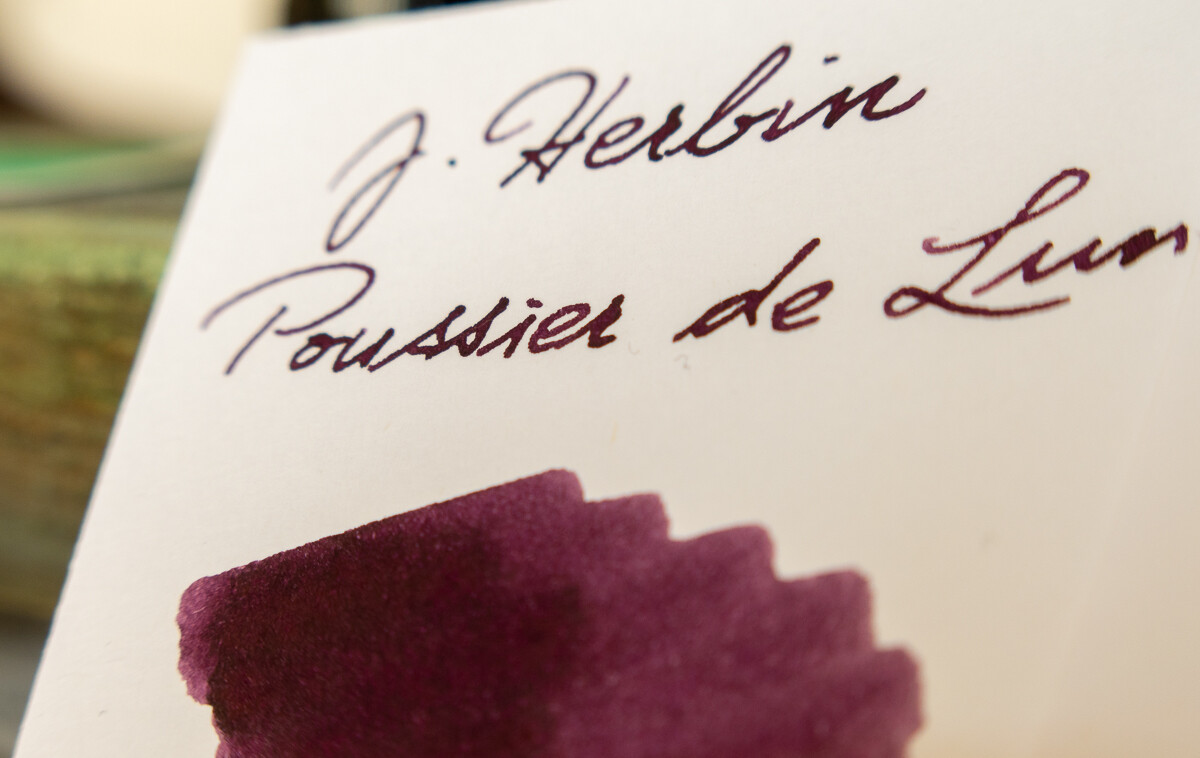 J. Herbin
Poussier de Lun